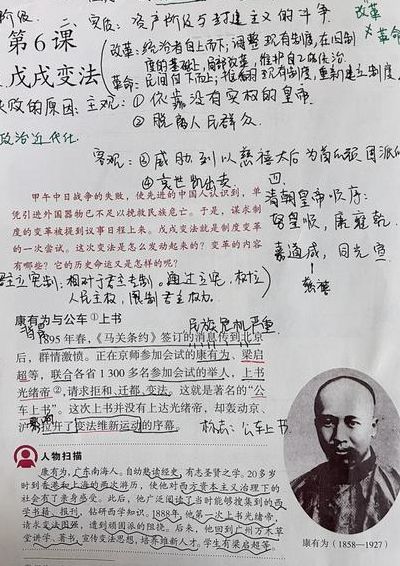 阶级 二、实质：资产阶级与封建主义的斗争
改革≠革命
第6课
戊戌变法
改革：统治者自上而下，调整现有制度，在旧制
度的基础上，局部改革，维护自己统治。
革命：民间自下而上，推翻现有制度，重新建立制度
失败的原因：主观：①依靠没有实权的皇帝
②脱离人民群众
政治近代化
客观：③威胁到以慈禧太后为首的顽固派
④袁世凯出卖
甲午中日战争的失败，使先进的中国人认识到，单
凭引进外国器物已不足以挽救民族危亡。于是，谋求制
度的变革被提到议事日程上来。戊戌变法就是制度变革
的一次尝试。这次变法是怎么发动起来的？变革的内容
有哪些？它的历史命运又是怎样的呢？
四、
清朝皇帝顺序：
努皇顺，康雍乾，
嘉道咸，同光宣
慈禧
君主立宪制：相对于君主专制。通过立宪，树立
人民主权，限制君主权力。
康有为与公车①上书
背景 民族危机严重
1895年春，《马关条约》签订的消息传到北京
后，群情激愤。正在京师参加会试的康有为、梁启
超等，联合各省1 300多名参加会试的举人，上书
光绪帝②，请求拒和、迁都、变法。这就是著名的“公
车上书”。这次上书并没有上达光绪帝，却轰动京、
沪，拉开了变法维新运动的序幕。
标志：公车上书
人物扫描
康有为，广东南海人。自幼熟读经史，有志圣贤之学。20多岁
时到香港和上海的两次游历，使他对西方资本主义治理下的
社会有了亲身感受。此后，他广泛阅读了当时能够搜集到的西
学书籍、报刊，钻研西学知识。1888年，他第一次上书光绪帝，
请求变法图强，遭到顽固派的阻挠。后来，他回到广州万木草
堂讲学、著书，宣传变法思想，培养维新人才。学生有梁启超等。
康有为（1858—1927）